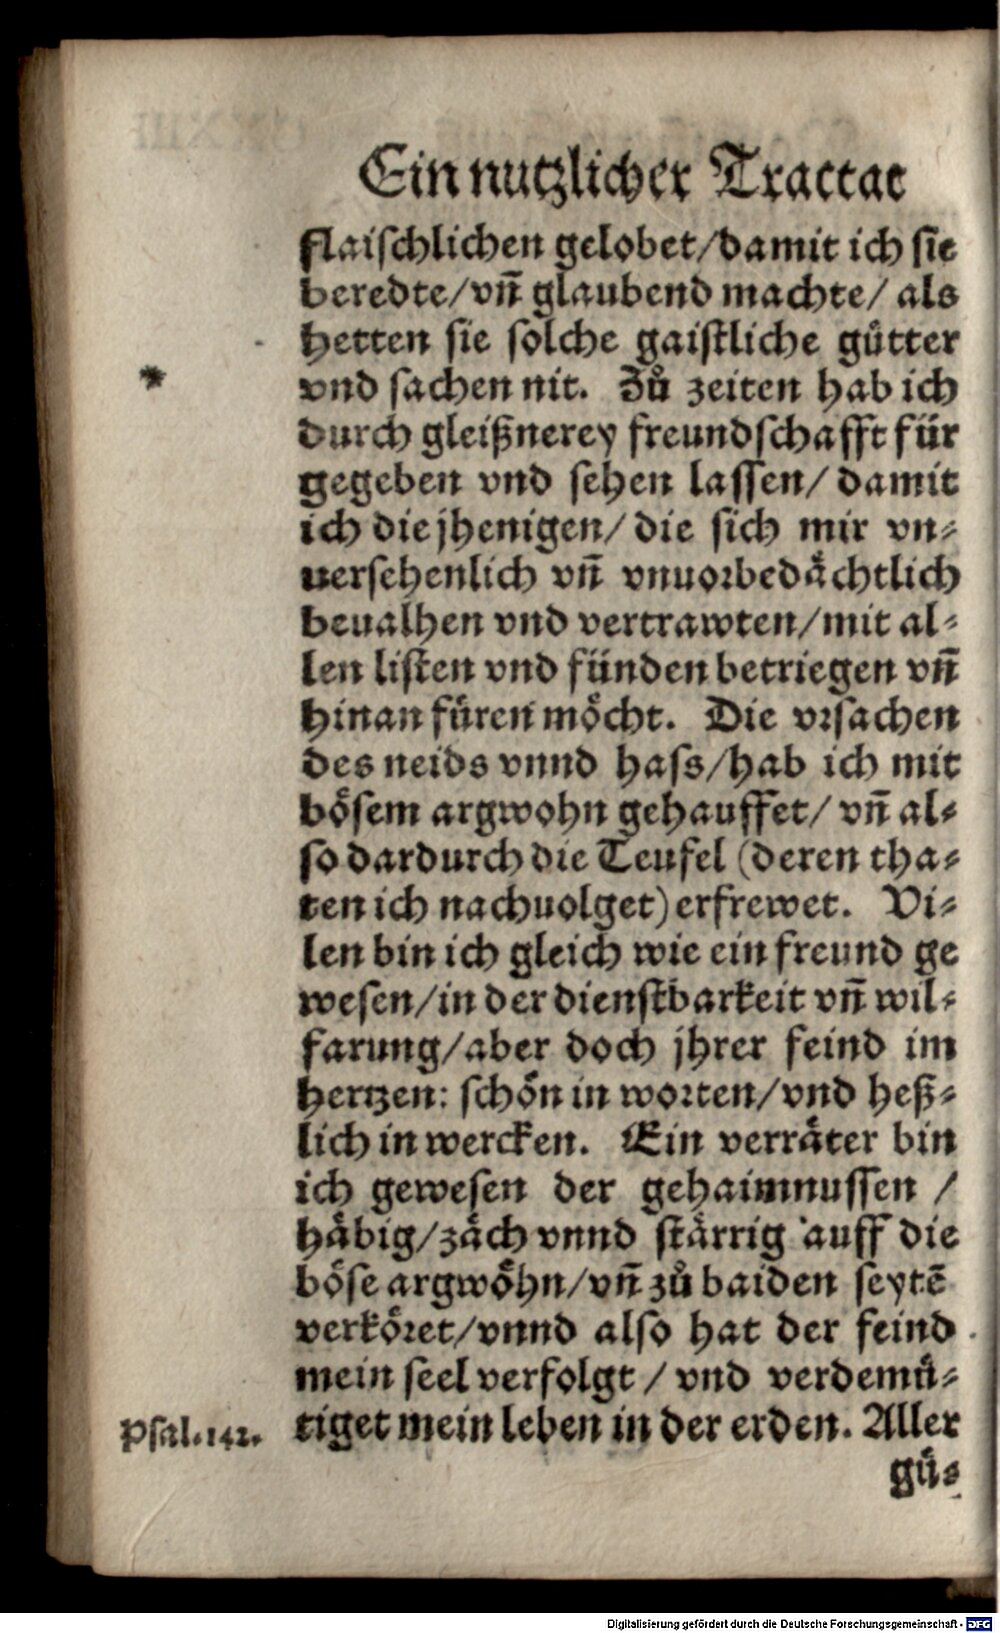 Ein nutzlicher Tractat
flaischlichen gelobet/damit ich sie
beredte/vñ glaubend machte/ als
hetten sie solche gaistliche guͤtter
vnd sachen nit. Zuͦ zeiten hab ich
durch gleißnerey freundschafft für
gegeben vnd sehen lassen/ damit
ich die jhenigen/ die sich mir vn⸗
uersehenlich vñ vnuorbedaͤchtlich
beualhen vnd vertrawten/mit al⸗
len listen vnd fünden betriegen vñ
hinan fuͤren moͤcht. Die vrsachen
des neids vnnd hass/hab ich mit
boͤsem argwohn gehauffet/ vñ al⸗
so dardurch die Teufel (deren tha⸗
ten ich nachuolget) erfrewet. Vi⸗
len bin ich gleich wie ein freund ge
wesen/in der dienstbarkeit vñ wil⸗
farung/aber doch jhrer feind im
hertzen: schoͤn in worten/vnd heß⸗
lich in wercken. Ein verraͤter bin
ich gewesen der gehaimnussen /
haͤbig/zaͤch vnnd staͤrrig auff die
boͤse argwoͤhn/vñ zuͦ baiden seytẽ
verkoͤret/vnnd also hat der feind
mein seel verfolgt / vnd verdemuͤ⸗
Psal.142. tiget mein leben in der erden. Aller
guͤ⸗
Digitalisierung gefördert durch die Deutsche Forschungsgemeinschaft - DFG